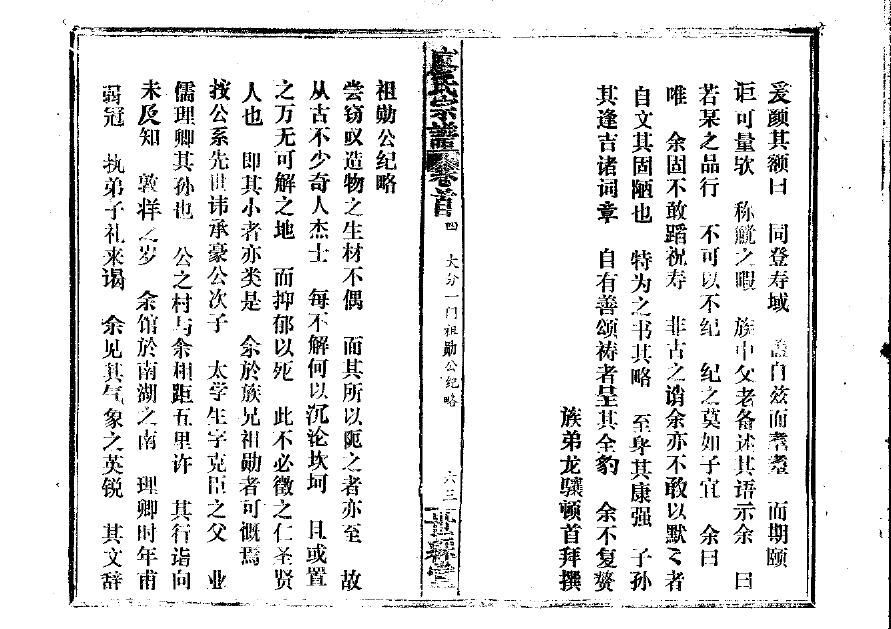 爰颜其额曰 同登寿域 自兹而耄耋 而期颐
讵可量欤 称觥之暇 族中父老备述其语示余 曰
若某之品行 不可以不纪 纪之莫如子宜 余曰
唯 余固不敢蹈祝寿 非古之诮余亦不敢以默之者
自文其固陋也 特为之书其略 至身其康强 子孙
其逢吉诸词章 自有善颂祷者呈其全豹 余不复赘
族弟龙骧顿首拜撰
氏宗谱 卷首 四 大分一门祖勋公纪略 六三
祖勋公纪略
尝窃叹造物之生材不偶 而其所以阨之者亦至 故
从古不少奇人杰士 每不解何以沉沦坎坷 且或置
之万无可解之地 而抑郁以死 此不必徵之仁圣贤
人也 即其小者亦类是 余於族兄祖勋者可慨焉
按公系先世讳承豪公次子 太学生字克臣之父 业
儒理卿其孙也 公之村与余相距五里许 其行诣向
未及知 敦牂之岁 余馆於南湖之南 理卿时年甫
弱冠 执弟子礼来谒 余见其气象之英锐 其文辞